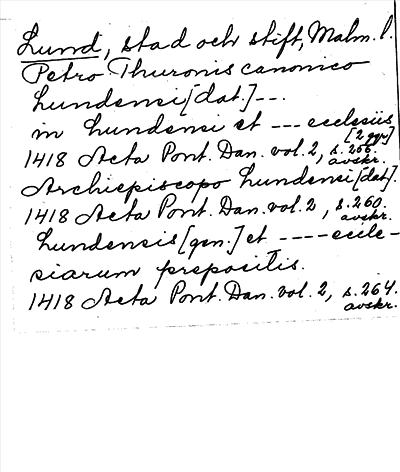 Lund, stad och stift, Malm. l.
Petro Thuronis canonico
Lundensi [dat.] --.
in Lundensi et --- ecclesiis
[2 ggr]
1418 Acta Pont. Dan. vol. 2, s. 256.
avskr.
Archiepiscopo Lundensi [dat].
1418 Acta Pont. Dan. vol. 2, s. 260.
avskr.
Lundensis [gen.] et ---- eccle-
siarum prepositis.
1418 Acta Pont. Dan. vol. 2, s. 264.
avskr.